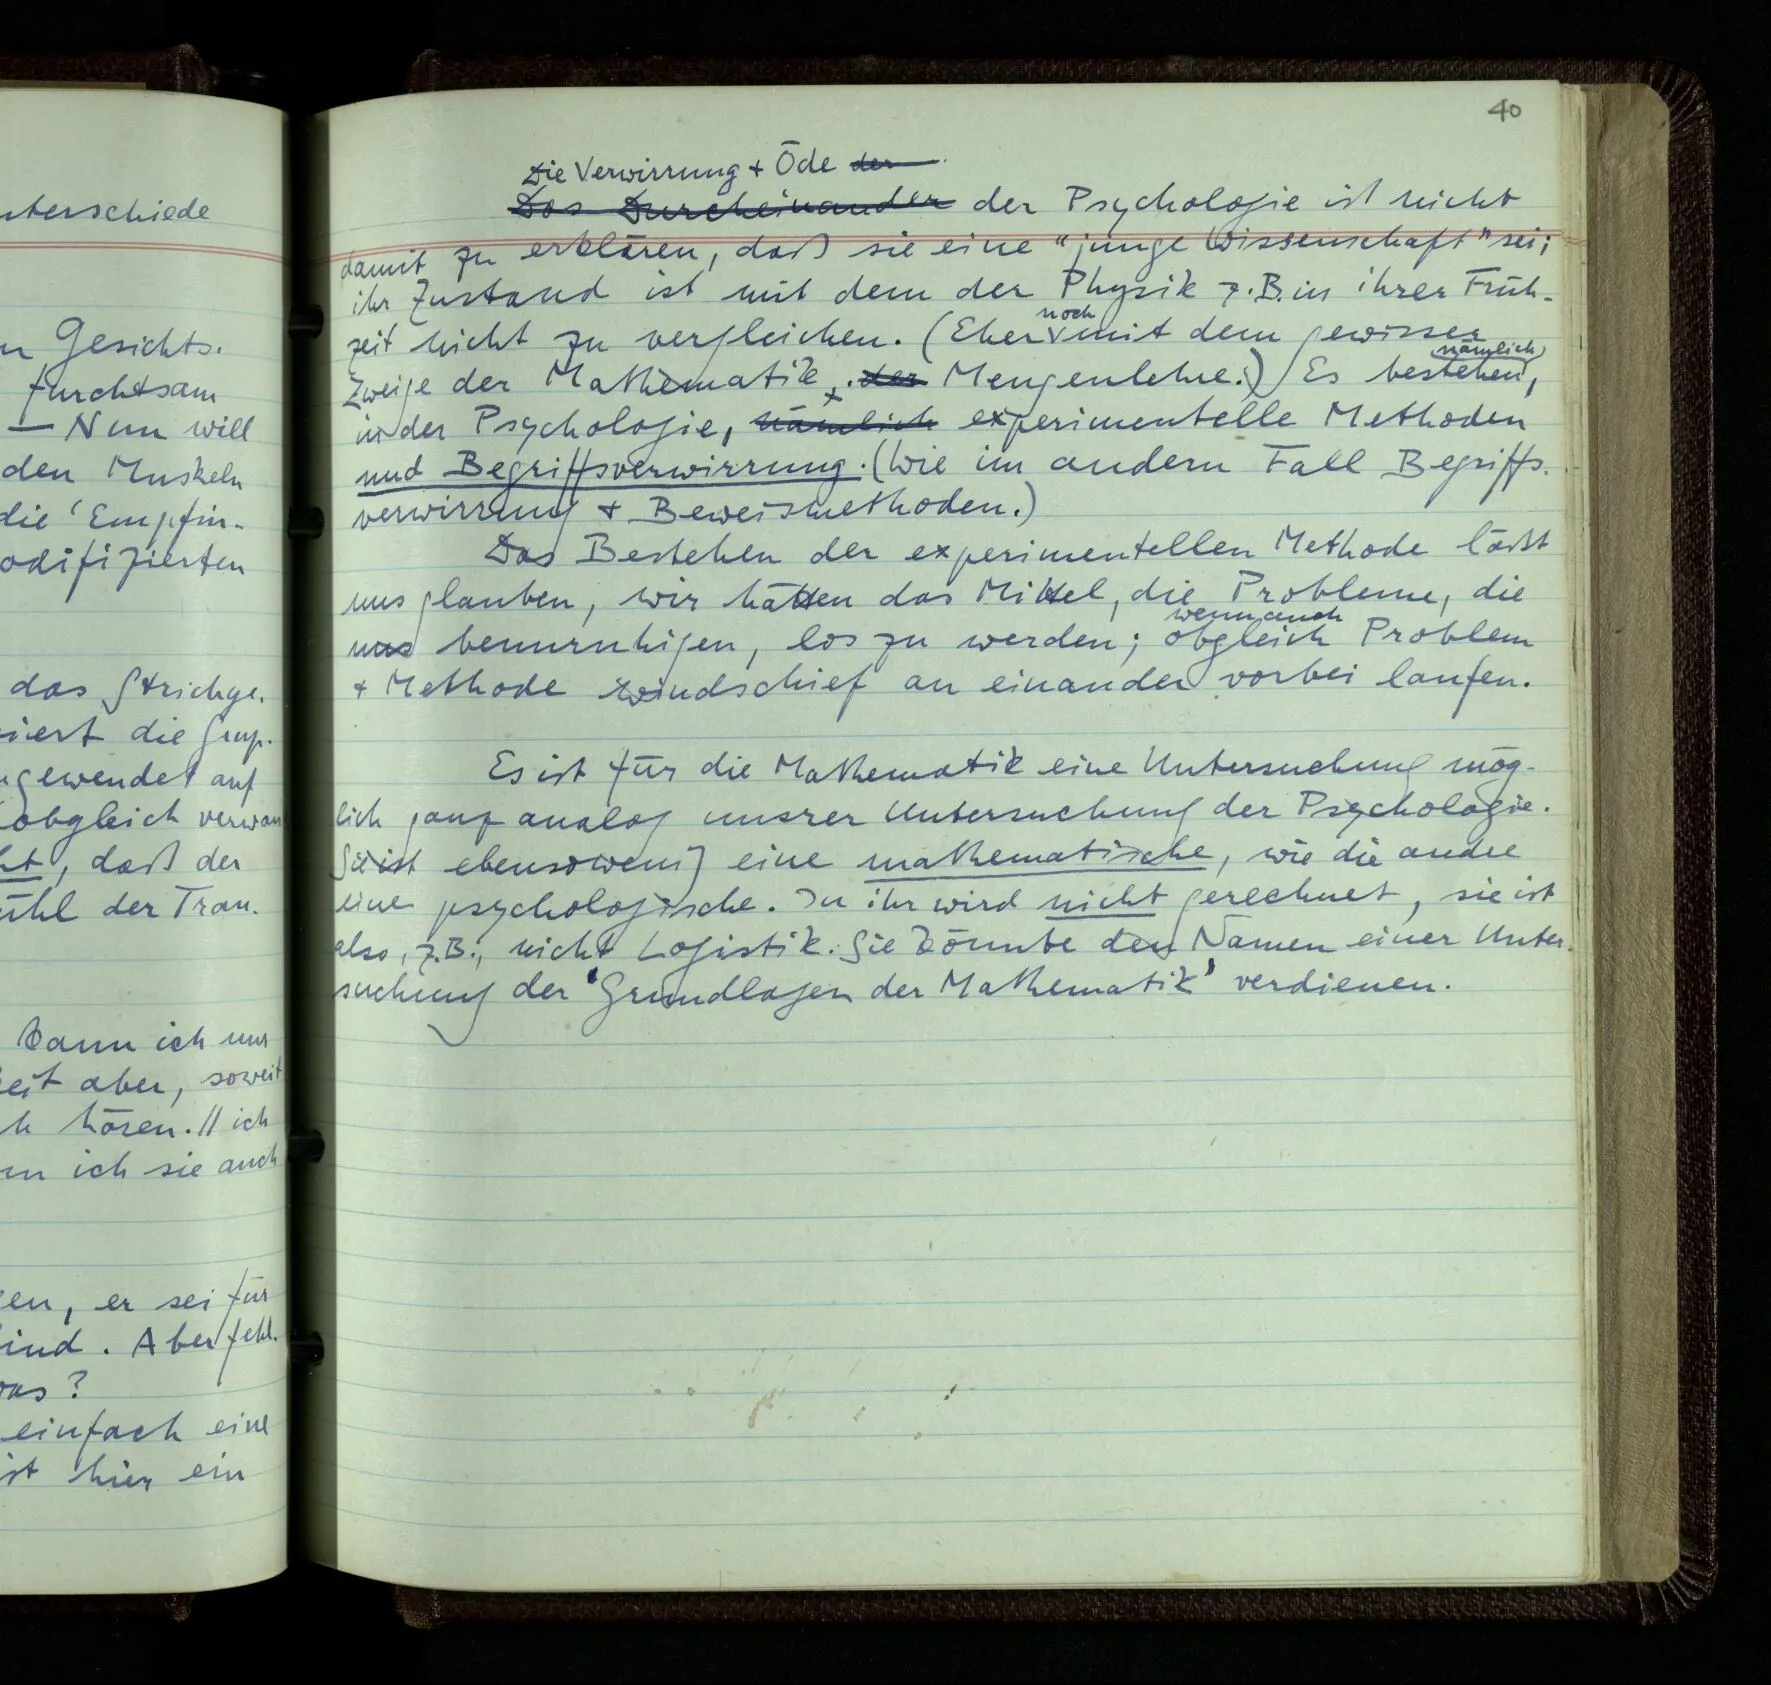 nterschiede
n Gesichts.
furchtsam
— Nun will
den Muskeln
die 'Empfin-
odifizierten
das Strichge.
niert die Grup.
ngewendet auf
obgleich verwan
ht, daß der
ühl der Trau.
kann ich nur
eit aber, soweit
h hören. // ich
nn ich sie auch
en, er sei für
ind. Aber fehl.
was?
einfach eine
ist hier ein
40
Die Verwirrung + Öde der
Das Durcheinander der Psychologie ist nicht
damit zu erklären, daß sie eine "junge Wissenschaft" sei;
ihr Zustand ist mit dem der Physik z.B. in ihrer Früh-
noch
zeit nicht zu vergleichen. (Eher mit dem gewisser
nämlich
Zweige der Mathematik, der Mengenlehre.) Es bestehen,
in der Psychologie, nämlich experimentelle Methoden
und Begriffsverwirrung. (Wie im andern Fall Begriffs-
verwirrung + Beweismethoden.)
Das Bestehen der experimentellen Methode läßt
uns glauben, wir hätten das Mittel, die Probleme, die
wenn auch
uns beunruhigen, los zu werden; obgleich Problem
+ Methode windschief an einander vorbei laufen.
Es ist für die Mathematik eine Untersuchung mög-
lich ganz analog unsrer Untersuchung der Psychologie.
Sie ist ebensowenig eine mathematische, wie die andre
eine psychologische. In ihr wird nicht gerechnet, sie ist
also, z.B., nicht Logistik. Sie könnte den Namen einer Unter-
suchung der 'Grundlagen der Mathematik' verdienen.